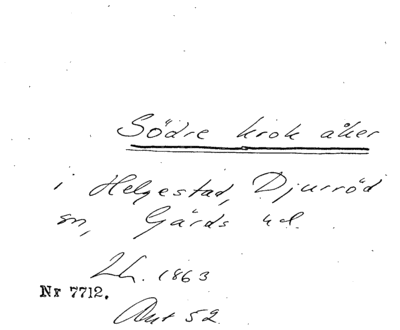 Södre krok åker
i Helgestad, Djurröd
sn, Gärds hd.
Lh. 1863
Nr 7712.
Akt 52